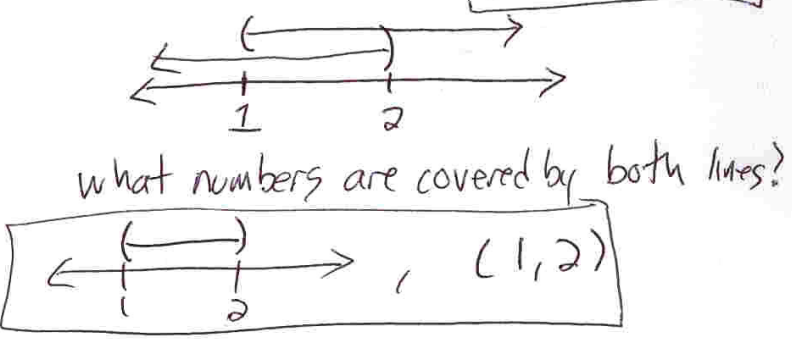 1 2
what numbers are covered by both lines?
1 2 , (1,2)